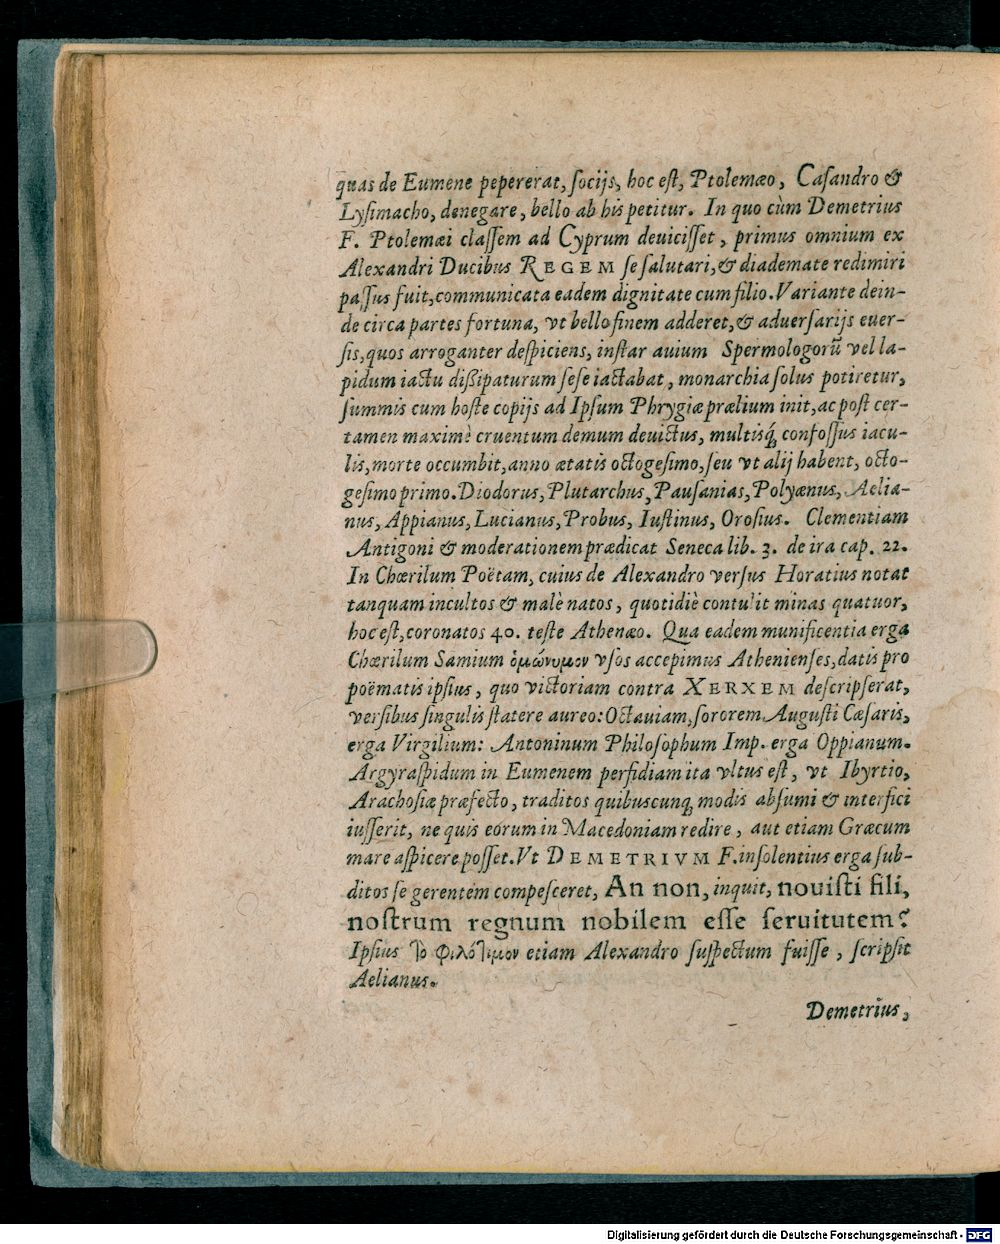 quas de Eumene pepererat, socijs, hoc est, Ptolemæo, Casandro &
Lysimacho, denegare, bello ab his petitur. In quo cùm Demetrius
F. Ptolemæi classem ad Cyprum deuicisset, primus omnium ex
Alexandri Ducibus REGEM se salutari, & diademate redimiri
passus fuit, communicata eadem dignitate cum filio. Variante dein-
de circa partes fortuna, vt bello finem adderet, & aduersarijs euer-
sis, quos arroganter despiciens, instar auium Spermologorũ vel la-
pidum iactu dißipaturum sese iactabat, monarchia solus potiretur,
summis cum hoste copijs ad Ipsum Phrygiæ prælium init, ac post cer-
tamen maximè cruentum demum deuictus, multisq́; confossus iacu-
lis, morte occumbit, anno ætatis octogesimo, seu vt alij habent, octo-
gesimo primo. Diodorus, Plutarchus, Pausanias, Polyænus, Aelia-
nus, Appianus, Lucianus, Probus, Iustinus, Orosius. Clementiam
Antigoni & moderationem prædicat Seneca lib. 3. de ira cap. 22.
In Chœrilum Poëtam, cuius de Alexandro versus Horatius notat
tanquam incultos & malè natos, quotidiè contulit minas quatuor,
hoc est, coronatos 40. teste Athenæo. Qua eadem munificentia erga
Chœrilum Samium ὁμώνυμον vsos accepimus Athenienses, datis pro
poëmatis ipsius, quo victoriam contra XERXEM descripserat,
versibus singulis statere aureo: Octauiam, sororem Augusti Cæsaris,
erga Virgilium: Antoninum Philosophum Imp. erga Oppianum.
Argyraspidum in Eumenem perfidiam ita vltus est, vt Ibyrtio,
Arachosiæ præfecto, traditos quibuscunq; modis absumi & interfici
iusserit, ne quis eorum in Macedoniam redire, aut etiam Græcum
mare aspicere posset. Vt DEMETRIVM F. insolentius erga sub-
ditos se gerentem compesceret, An non, inquit, nouisti fili,
nostrum regnum nobilem esse seruitutem?
Ipsius τὸ φιλότιμον etiam Alexandro suspectum fuisse, scripsit
Aelianus.
Demetrius,
Digitalisierung gefördert durch die Deutsche Forschungsgemeinschaft - DFG